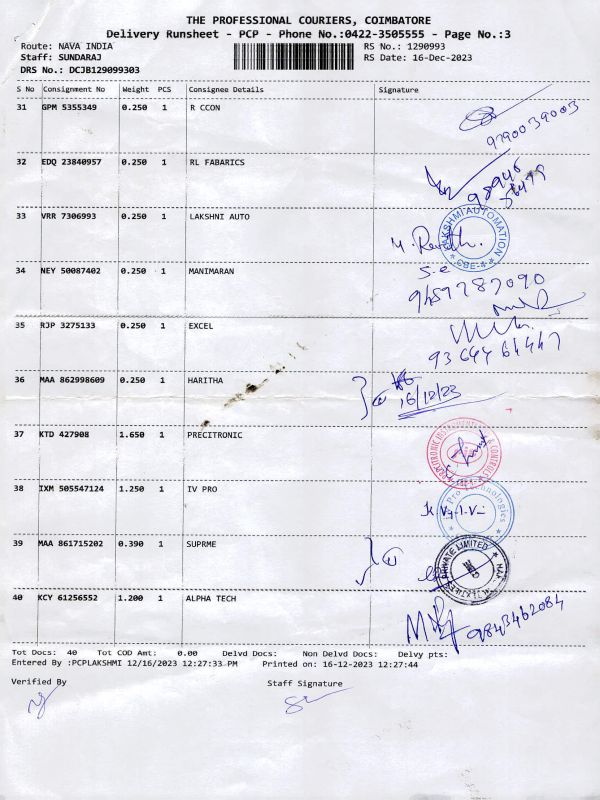 THE PROFESSIONAL COURIERS, COIMBATORE
Delivery Runsheet - PCP - Phone No.:0422-3505555 - Page No.:3
Route: NAVA INDIA RS No.: 1290993
Staff: SUNDARAJ RS Date: 16-Dec-2023
DRS No.: DCJB129099303
S No Consignment No Weight PCS Consignee Details Signature
31 GPM 5355349 0.250 1 R CCON
9790039003
32 EDQ 23840957 0.250 1 RL FABARICS
33 VRR 7306993 0.250 1 LAKSHNI AUTO
LAKSHMI AUTOMATION
CBE-4
34 NEY 50087402 0.250 1 MANIMARAN
35 RJP 3275133 0.250 1 EXCEL
36 MAA 862998609 0.250 1 HARITHA
16/12/23
37 KTD 427908 1.650 1 PRECITRONIC
38 IXM 505547124 1.250 1 IV PRO
Pro Technologies
39 MAA 861715202 0.390 1 SUPRME
PRIVATE LIMITED
40 KCY 61256552 1.200 1 ALPHA TECH
9843462084
Tot Docs: 40 Tot COD Amt: 0.00 Delvd Docs: Non Delvd Docs: Delvy pts:
Entered By :PCPLAKSHMI 12/16/2023 12:27:33 PM Printed on: 16-12-2023 12:27:44
Verified By Staff Signature